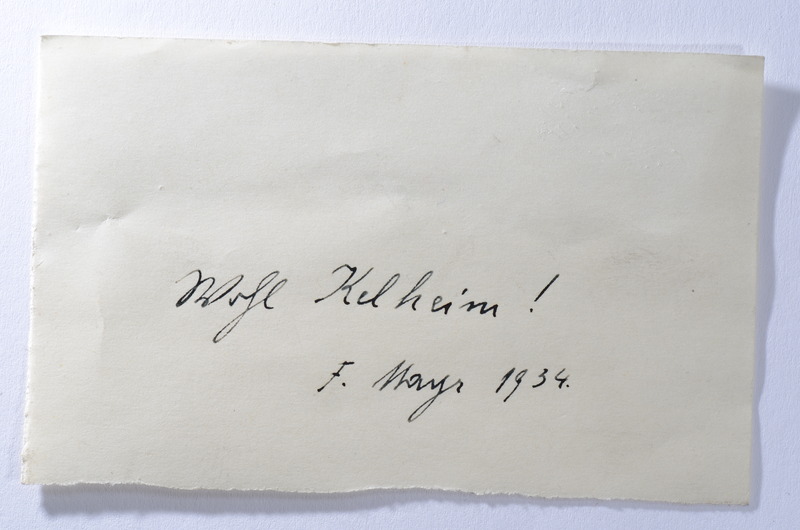 Wohl Kelheim !
F. Mayr 1934.